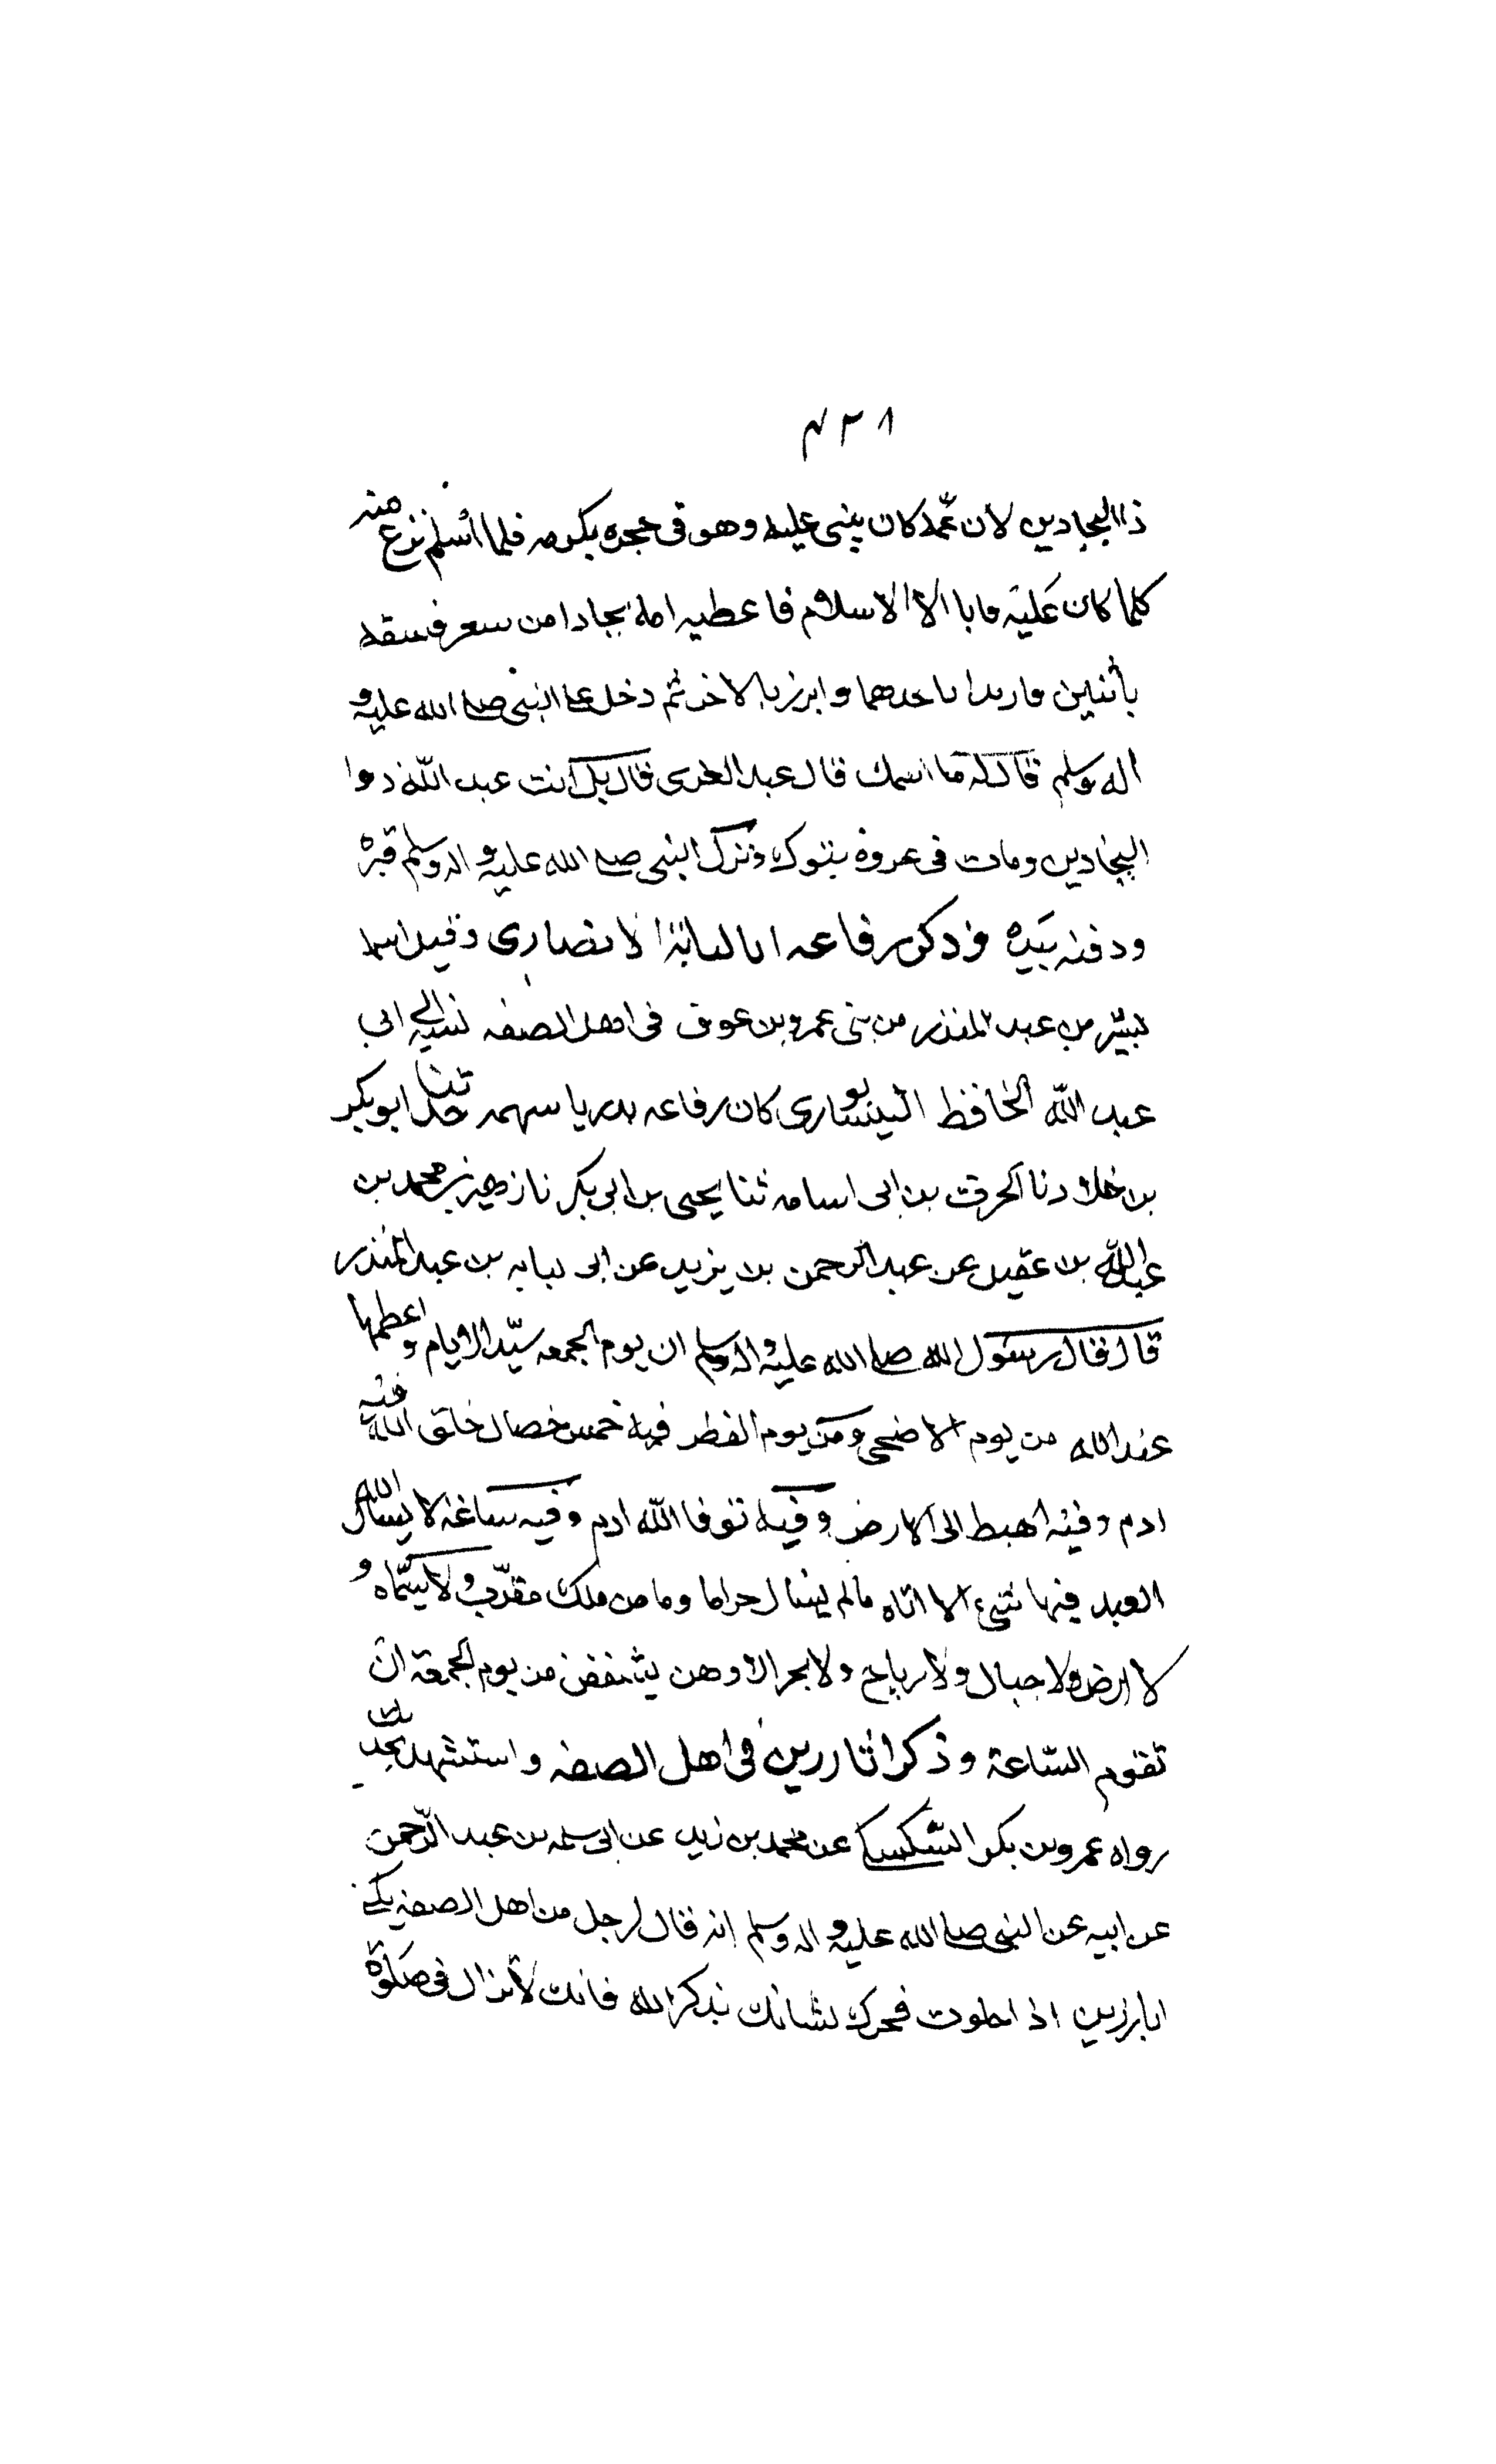 ٤٢٨
ذا البجادين لان عمه كان يبنى عليه وهو فى حجره يكرمه فلما اسلم نزع منه
كلما كان عليه فابا الا الاسلام فاعطيه امه بجادا من سعر فسقه
بأثنين فاربدا باحدهما وابرز بالاخر ثم دخل على النبى صلى الله عليه و
اله وسلم فقال له ما اسمك قال عبد العزى قال بل انت عبد الله ذوا
البجادين ومات فى عروة بتبوك ونزل النبى صلى الله عليه واله وسلم قبره
ودفنه بيده وذكر رفاعه ابا لبابة الانصارى وقيل اسمه
بشير بن عبد المنذر من بنى عمرو بن عوف فى اهل الصفه نسبه الى ابى
عبد الله الحافظ النيسابورى كان رفاعه بدريا سهمه حدثنا ابو بكر
بن خلاد نا الحرث بن ابى اسامه ثنا يحيى بن ابى بكر نا زهير بن محمد بن
عبد الله بن عقيل عن عبد الرحمن بن يزيد عن ابى لبابه بن عبد المنذر
قال قال رسول الله صلى الله عليه واله وسلم ان يوم الجمعه سيّد الايام واعظمها
عند الله من يوم الاضحى ومن يوم الفطر فيه خمس خصال خلق الله فيه
ادم وفيه اهبط الى الارض وفيه توفا الله ادم وفيه ساعة لا يسأل الله
العبد فيها شيئ الا اتاه ما لم يسال حراما وما من ملك مقرّب ولا سماء و
لا ارض ولا جبال ولا رياح ولا بحر الا وهن يشفقن من يوم الجمعة ان
تقوم السّاعة وذكر ابا رزين فى اهل الصفه واستشهد بحديث
رواه عمرو بن بكر السّكسكى عن محمد بن زيد عن ابى سلمه بن عبد الرّحمن
عن ابيه عن النبى صلى الله عليه واله وسلم انه قال لرجل من اهل الصفه يكنى
ابا رزين اذا خلوت فحرك لسانك بذكر الله فانك لا تزال فى صلوة